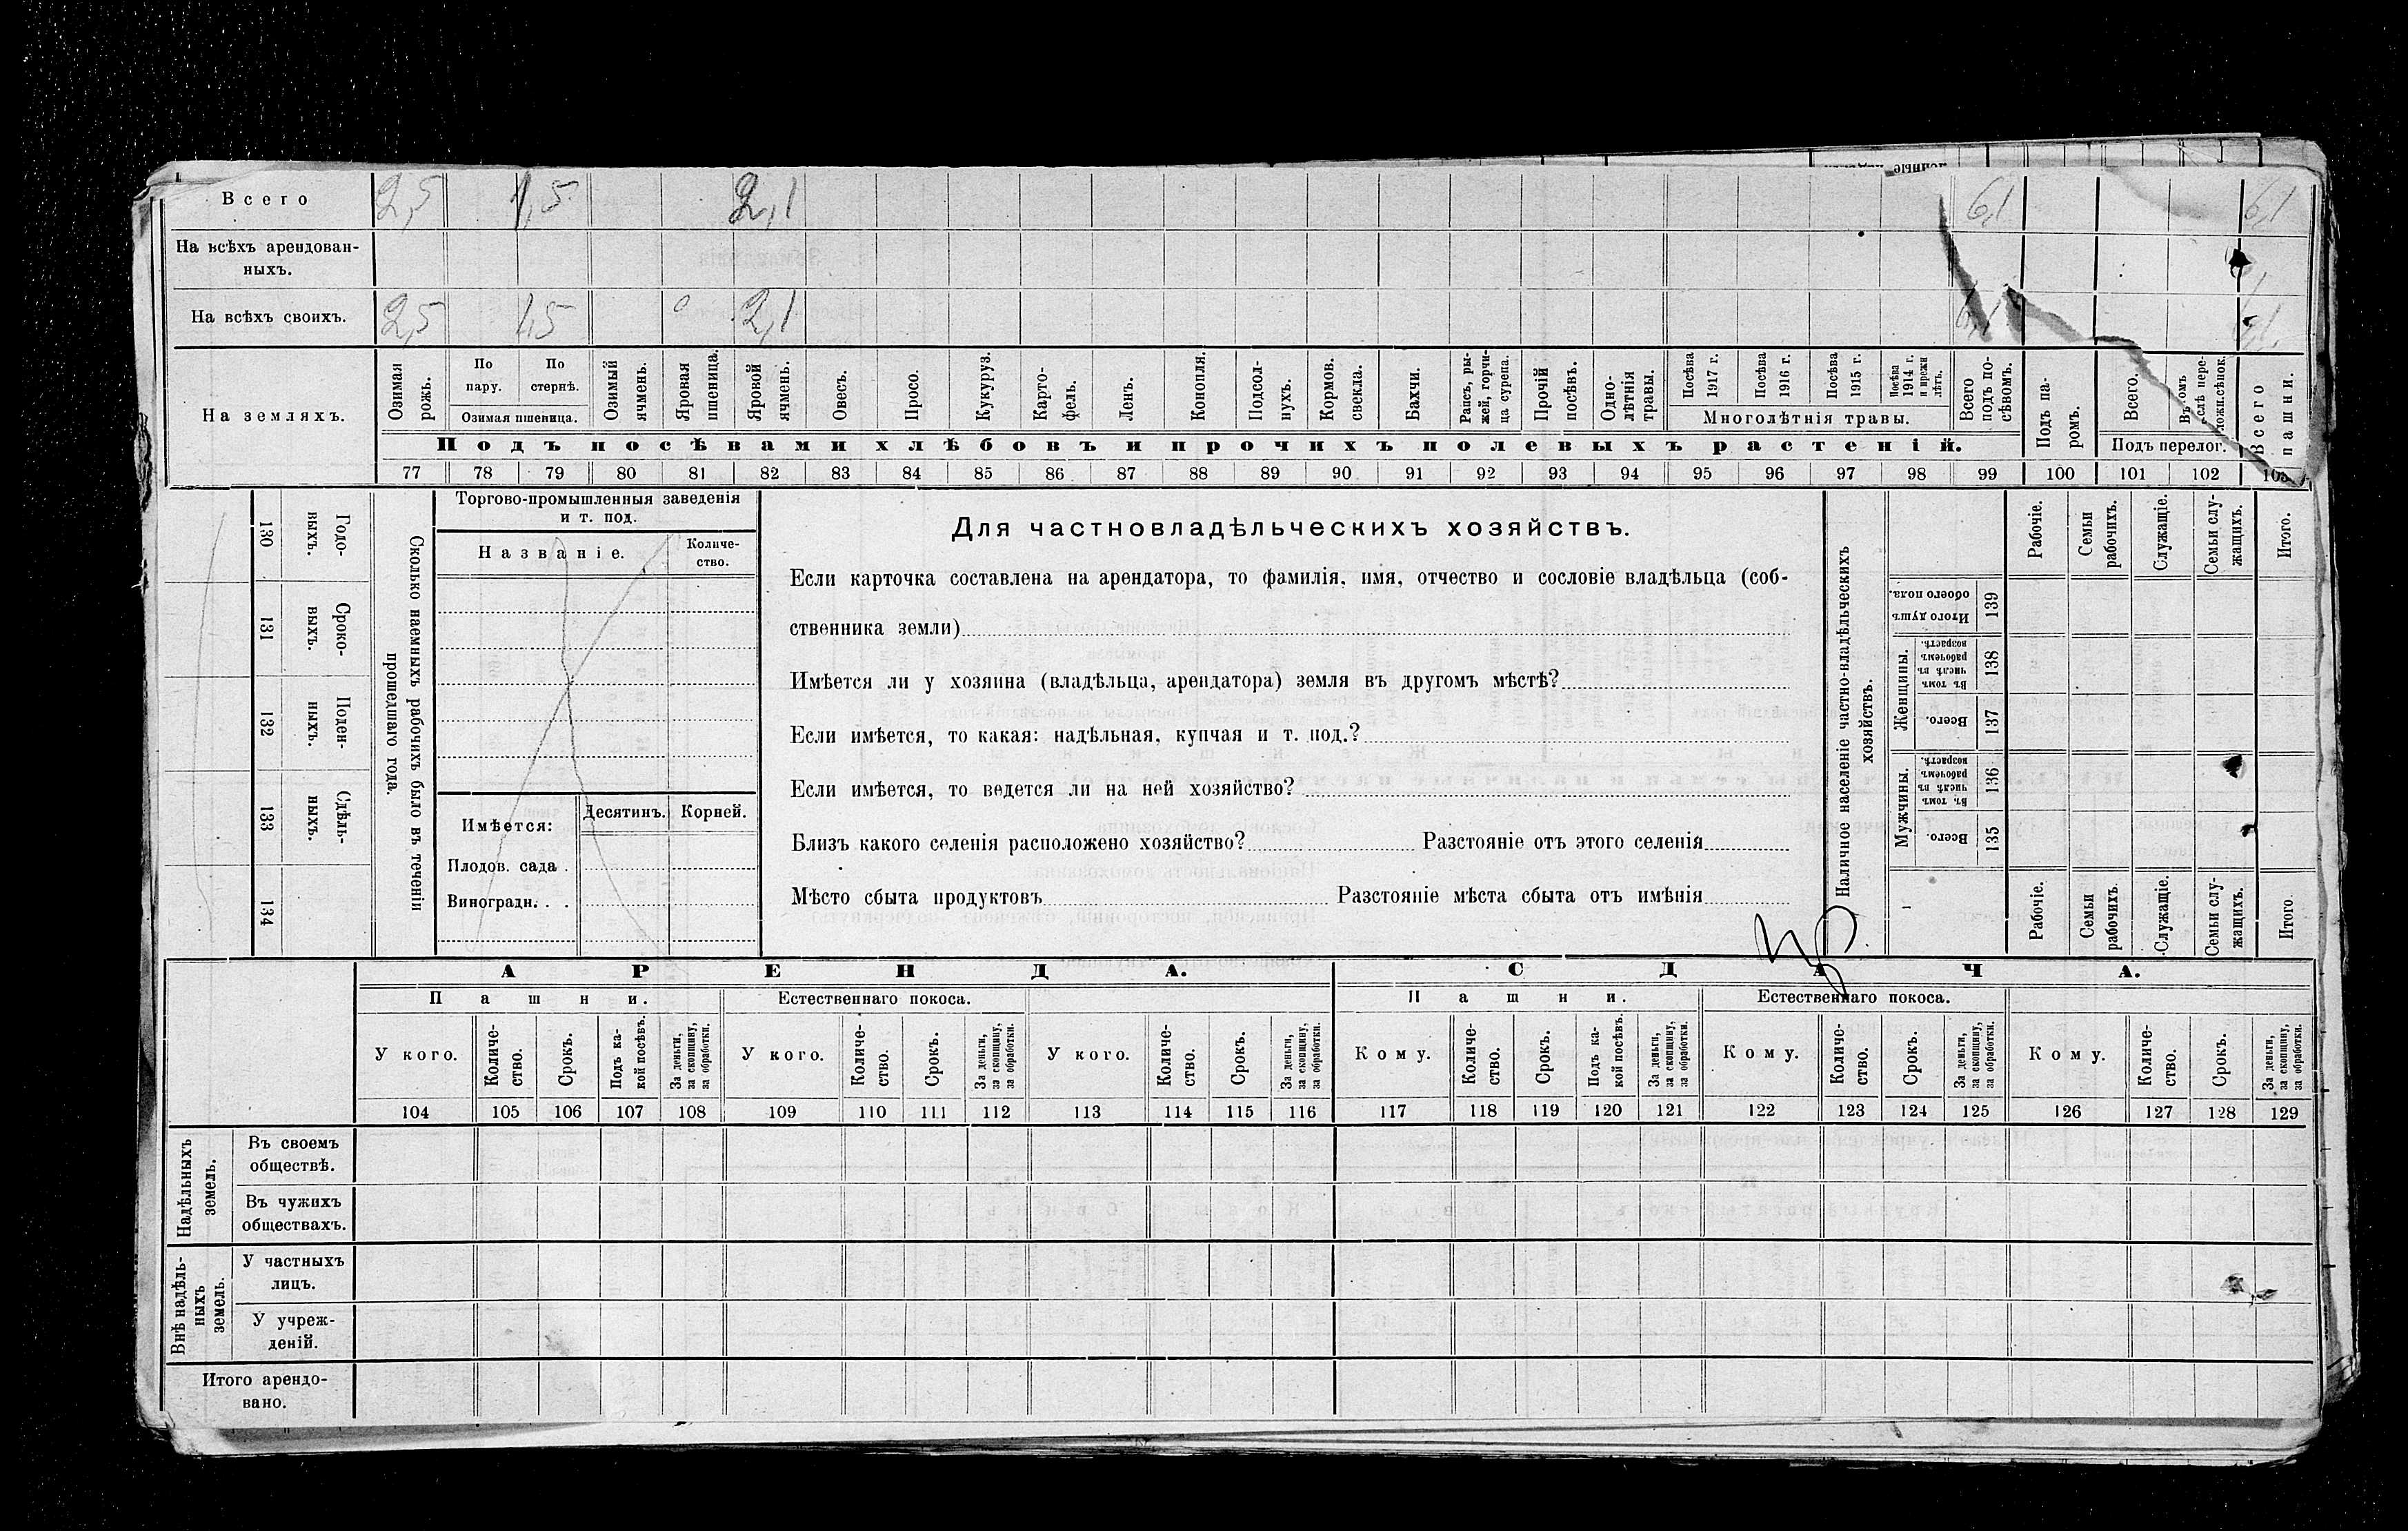 Всего 2,5 1,5 2,1 6,1 6,1
На всѣхъ арендован-
ныхъ.
На всѣхъ своихъ. 2,5 1,5 0 2,1 6,1
На земляхъ.
Озимая рожь.
По пару.
По стернѣ.
Озимая пшеница.
Озимый ячмень.
Яровая пшеница.
Яровой ячмень.
Овесъ.
Просо.
Кукуруз.
Карто-
фель.
Ленъ.
Конопля.
Подсол-
нухъ.
Кормов. свекла.
Бахчи.
Рапсъ, ры-
жей, горчи-
ца сурепа.
Прочій посѣвъ.
Одно-
лѣтнія травы.
Посѣва 1917 г.
Посѣва 1916 г.
Посѣва 1915 г.
Посѣва 1914 г. и прежн лѣтъ.
Многолѣтнія травы.
Всего подъ по-
сѣвомъ.
Подъ па-
ромъ.
Всего.
Подъ перелог.
Всего пашни.
Подъ посѣвами хлѣбовъ и прочихъ полевыхъ растеній.
77 78 79 80 81 82 83 84 85 86 87 88 89 90 91 92 93 94 95 96 97 98 99 100 101 102
130 Годо-
выхъ.
131 Сроко-
выхъ.
132 Поден-
ныхъ.
133 Сдѣль-
ныхъ.
134
Сколько наемныхъ рабочихъ было въ теченіи
прошедшаго года.
Торгово-промышленныя заведенія
и т. под.
Названіе.
Количе-
ство.
Имѣется: Десятинъ. Корней.
Плодов. сада .
Виноградн. . .
Для частновладѣльческихъ хозяйствъ.
Если карточка составлена на арендатора, то фамилія, имя, отчество и сословіе владѣльца (соб-
ственника земли)
Имѣется ли у хозяина (владѣльца, арендатора) земля въ другомъ мѣстѣ?
Если имѣется, то какая: надѣльная, купчая и т. под.?
Если имѣется, то ведется ли на ней хозяйство?
Близъ какого селенія расположено хозяйство? Разстояніе отъ этого селенія
Мѣсто сбыта продуктовъ Разстояніе мѣста сбыта отъ имѣнія
Наличное населеніе частно-владѣльческихъ
хозяйствъ.
Рабочіе.
Семьи рабочихъ.
Служащіе.
Семьи слу-
жащихъ.
Итого.
Итого душъ обоего пола. 139
Женщины.
Въ томъ числѣ въ рабочемъ возрастѣ. 138
Всего. 137
Мужчины.
Въ томъ числѣ въ рабочемъ возрастѣ. 136
Всего. 135
Рабочіе.
Семьи рабочихъ.
Служащіе.
Семьи слу-
жащихъ.
Итого.
АРЕНДА. СДАЧА.
Пашни. Естественнаго покоса. Пашни. Естественнаго покоса.
У кого.
Количе-
ство.
Срокъ.
Подъ ка-
кой посѣвъ.
За деньги, за скопщину, за обработки.
У кого.
Количе-
ство.
Срокъ.
За деньги, за скопщину, за обработки.
У кого.
Количе-
ство.
Срокъ.
За деньги, за скопщину, за обработки.
Кому.
Количе-
ство.
Срокъ.
Подъ ка-
кой посѣвъ.
За деньги, за скопщину, за обработки.
Кому.
Количе-
ство.
Срокъ.
За деньги, за скопщину, за обработки.
Кому.
Количе-
ство.
Срокъ.
За деньги, за скопщину, за обработки.
104 105 106 107 108 109 110 111 112 113 114 115 116 117 118 119 120 121 122 123 124 125 126 127 128 129
Надѣльныхъ земель.
Въ своемъ
обществѣ.
Въ чужихъ
обществахъ.
Внѣ надѣль-
ныхъ земель.
У частныхъ
лицъ.
У учреж-
деній.
Итого арендо-
вано.